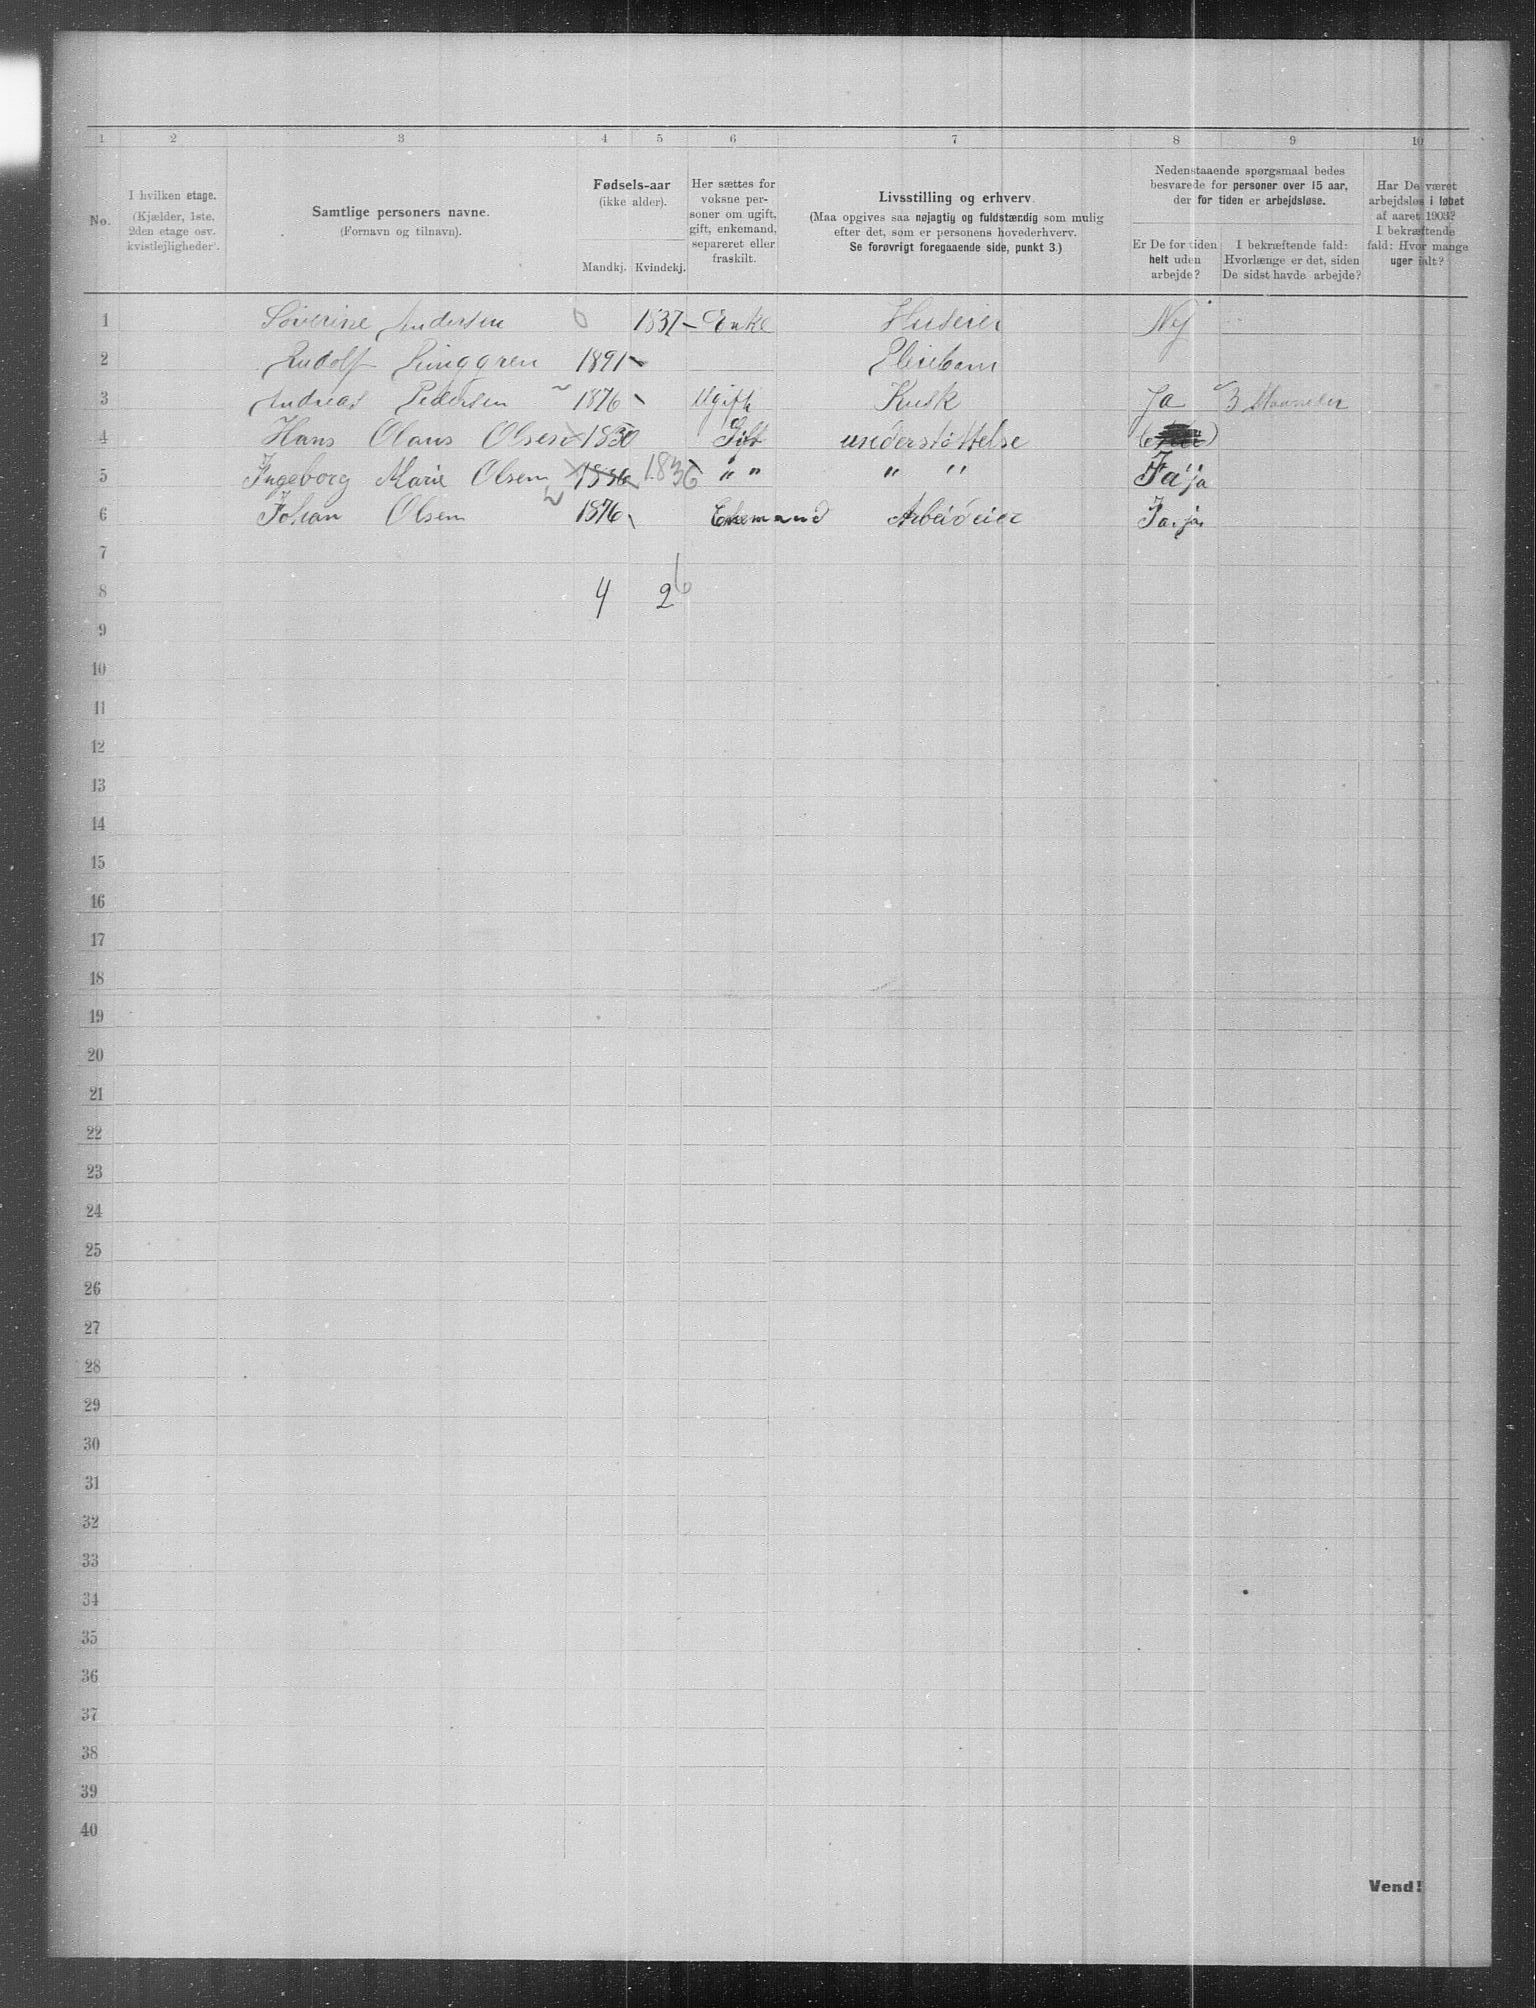 1 2 3 4 5 6 7 8 9 10
No.
I hvilken etage.
(Kjælder, 1ste,
2den etage osv.
kvistlejligheder).
Samtlige personers navne.
(Fornavn og tilnavn).
Fødsels-aar
(ikke alder).
Mandkj. Kvindekj.
Her sættes for
voksne per-
soner om ugift,
gift, enkemand,
separeret eller
fraskilt.
Livsstilling og erhverv.
(Maa opgives saa nøjagtig og fuldstændig som mulig
efter det, som er personens hovederhverv.
Se forøvrigt foregaaende side, punkt 3.)
Nedenstaaende spørgsmaal bedes
besvarede for personer over 15 aar,
der for tiden er arbejdsløse.
Er De for tiden
helt uden
arbejde?
I bekræftende fald:
Hvorlænge er det, siden
De sidst havde arbejde?
Har De været
arbejdsløs i løbet
af aaret 1903?
I bekræftende
fald: Hvor mange
uger ialt?
1 Søverine Andersen 0 1837 - Enke Huseier Nej
2 Rudolf Ringgren 1891 Pleiebarn
3 Andreas Pedersen 1876 Ugift Kusk Ja 3 Maaneder
4 Hans Olaus Olsen 1830 Gift understøttelse
5 Ingeborg Marie Olsen 1836 1836 " " " " Ja ja
6 Johan Olsen 1876 Enkemand Arbeideier Ja. ja.
7
8 4 2 6
9
10
11
12
13
14
15
16
17
18
19
20
21
22
23
24
25
26
27
28
29
30
31
32
33
34
35
36
37
38
39
40
Vend!